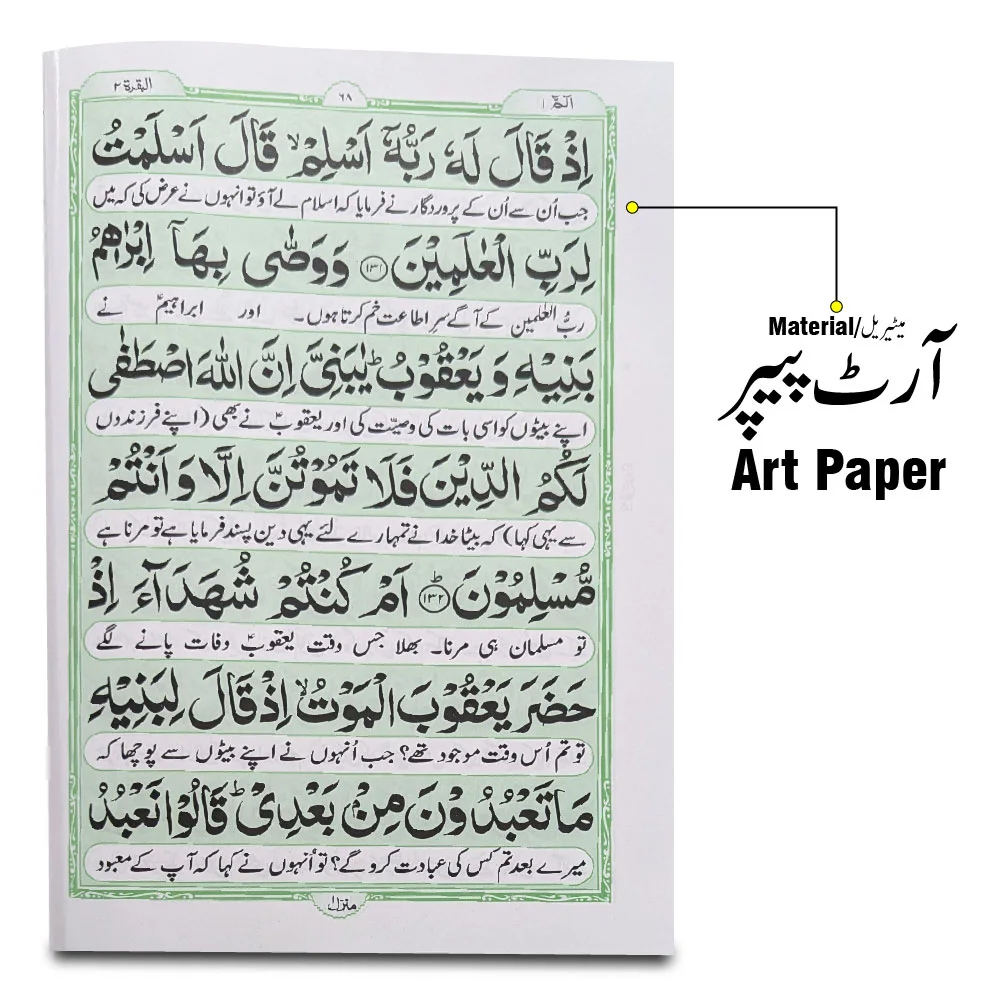 البقرة ٢
٦٨
الٓمّٓ ١
اِذْ قَالَ لَهٗ رَبُّهٗۤ اَسْلِمْ ۙ قَالَ اَسْلَمْتُ
جب اُن سے اُن کے پروردگار نے فرمایا کہ اسلام لے آؤ تو انہوں نے عرض کی کہ میں
لِرَبِّ الْعٰلَمِيْنَ ۝۱۳۱ وَوَصّٰى بِهَاۤ اِبْرٰهٖمُ
ربُّ العٰلمین کے آگے سرِ اطاعت خم کرتا ہوں۔ اور ابراہیمؑ نے
بَنِيْهِ وَ يَعْقُوْبُ ؕ يٰبَنِىَّ اِنَّ اللّٰهَ اصْطَفٰى
اپنے بیٹوں کو اسی بات کی وصیّت کی اور یعقوبؑ نے بھی (اپنے فرزندوں
لَكُمُ الدِّيْنَ فَلَا تَمُوْتُنَّ اِلَّا وَاَنْتُمْ
سے یہی کہا) کہ بیٹا خدا نے تمہارے لئے یہی دین پسند فرمایا ہے تو مرنا ہے
مُّسْلِمُوْنَ ؕ۝۱۳۲ اَمْ كُنْتُمْ شُهَدَآءَ اِذْ
تو مسلمان ہی مرنا۔ بھلا جس وقت یعقوبؑ وفات پانے لگے
حَضَرَ يَعْقُوْبَ الْمَوْتُ ۙ اِذْ قَالَ لِبَنِيْهِ
تو تم اُس وقت موجود تھے؟ جب اُنہوں نے اپنے بیٹوں سے پوچھا کہ
مَا تَعْبُدُوْنَ مِنْۢ بَعْدِىْ ؕ قَالُوْا نَعْبُدُ
میرے بعد تم کس کی عبادت کرو گے؟ تو اُنہوں نے کہا کہ آپ کے معبود
منزل ١
Material/میٹیریل
آرٹ پیپر
Art Paper